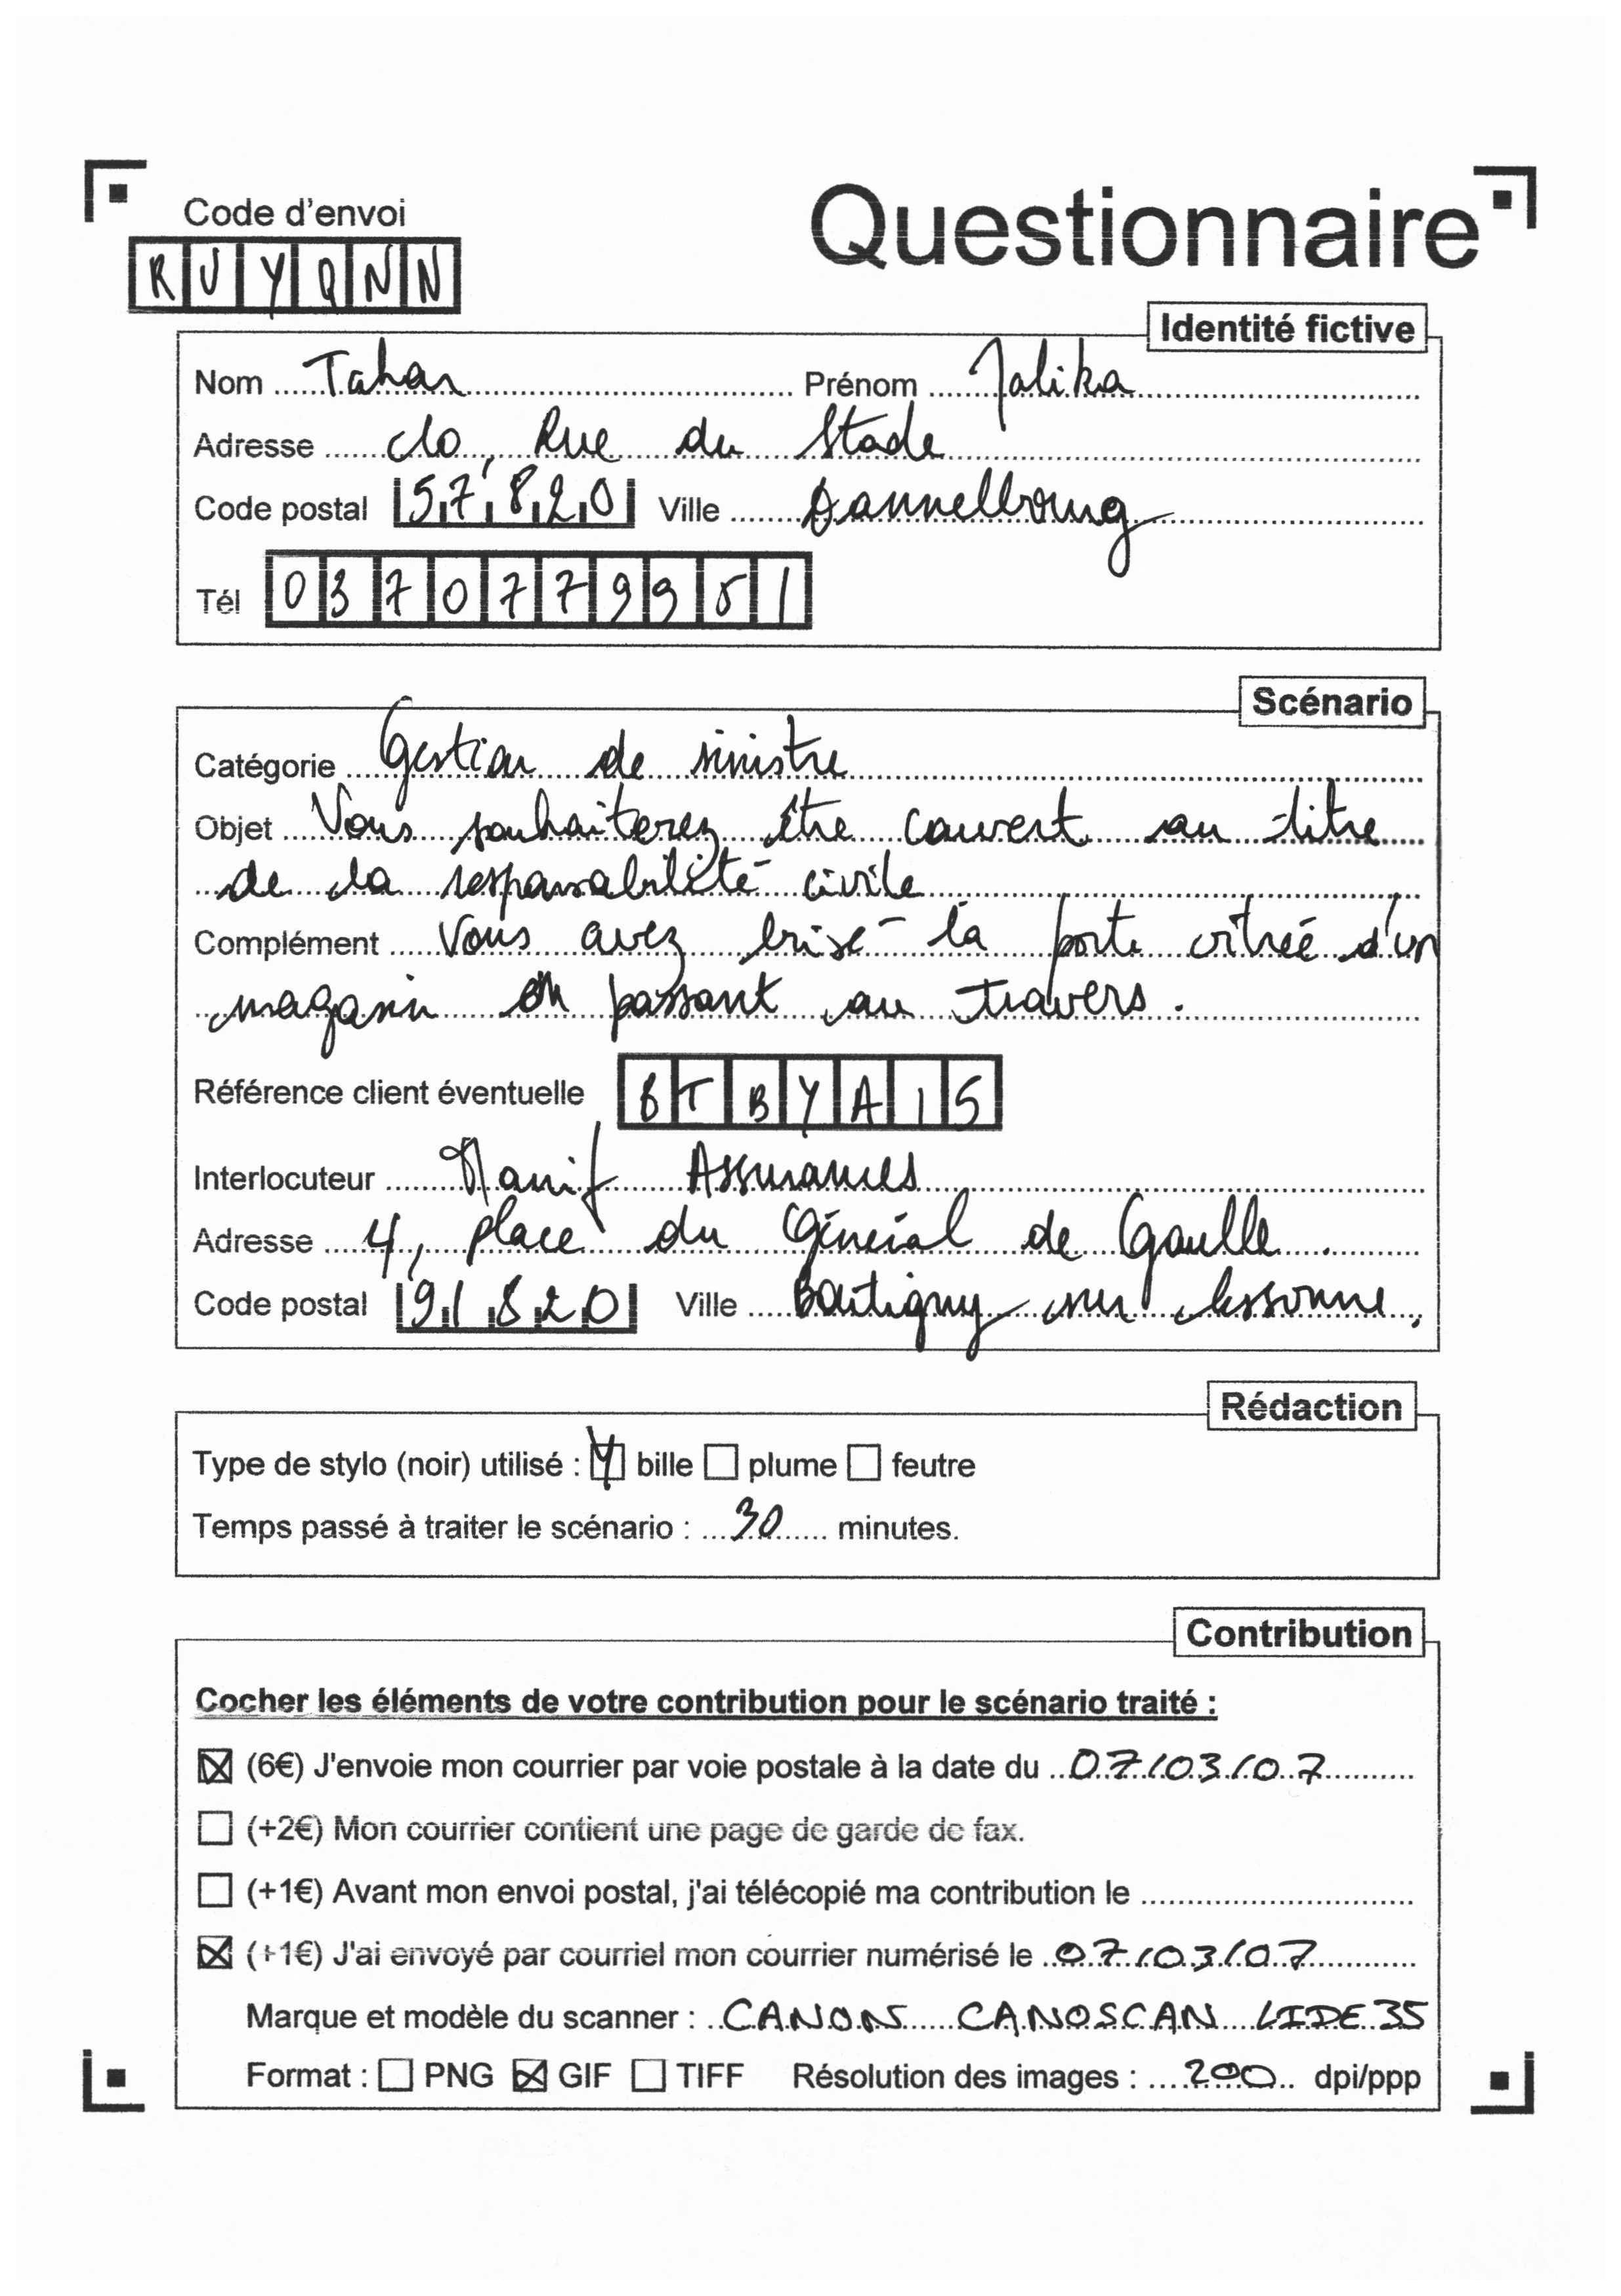 Code d'envoi
Questionnaire
R U Y Q N N
Identité fictive
Nom Tahar Prénom Malika
Adresse 10, Rue du Stade
Code postal 57820 Ville Dannelbourg
Tél 0370779951
Scénario
Catégorie Gestion de sinistre
Objet Vous souhaiterez être couvert au titre
de la responsabilité civile
Complément Vous avez brisé la porte vitrée d'un
magasin en passant au travers.
Référence client éventuelle BTBYA15
Interlocuteur Assurances
Adresse 4, place du Général de Gaulle
Code postal 91820 Ville Boutigny sur Lessonne.
Rédaction
Type de stylo (noir) utilisé : bille plume feutre
Temps passé à traiter le scénario : 30 minutes.
Contribution
Cocher les éléments de votre contribution pour le scénario traité :
(6€) J'envoie mon courrier par voie postale à la date du 07/03/07
(+2€) Mon courrier contient une page de garde de fax.
(+1€) Avant mon envoi postal, j'ai télécopié ma contribution le
(+1€) J'ai envoyé par courriel mon courrier numérisé le 07/03/07
Marque et modèle du scanner : CANON CANOSCAN LIDE 35
Format : PNG GIF TIFF Résolution des images : 200 dpi/ppp